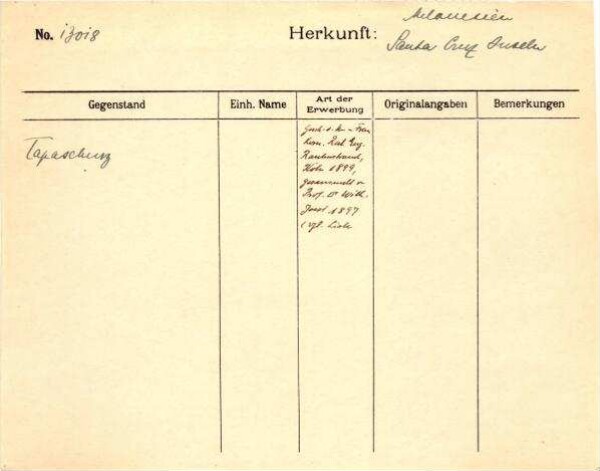 No. 13018
Herkunft: Melanesien
Santa Cruz Inseln
Gegenstand Einh. Name Art der Erwerbung Originalangaben Bemerkungen
Tapaschurz
Gesch. d.
Rautenstrauch,
Köln 1899,
gesammelt v.
Prof. Dr Wilh.
Joest 1897
(vgl. Liste